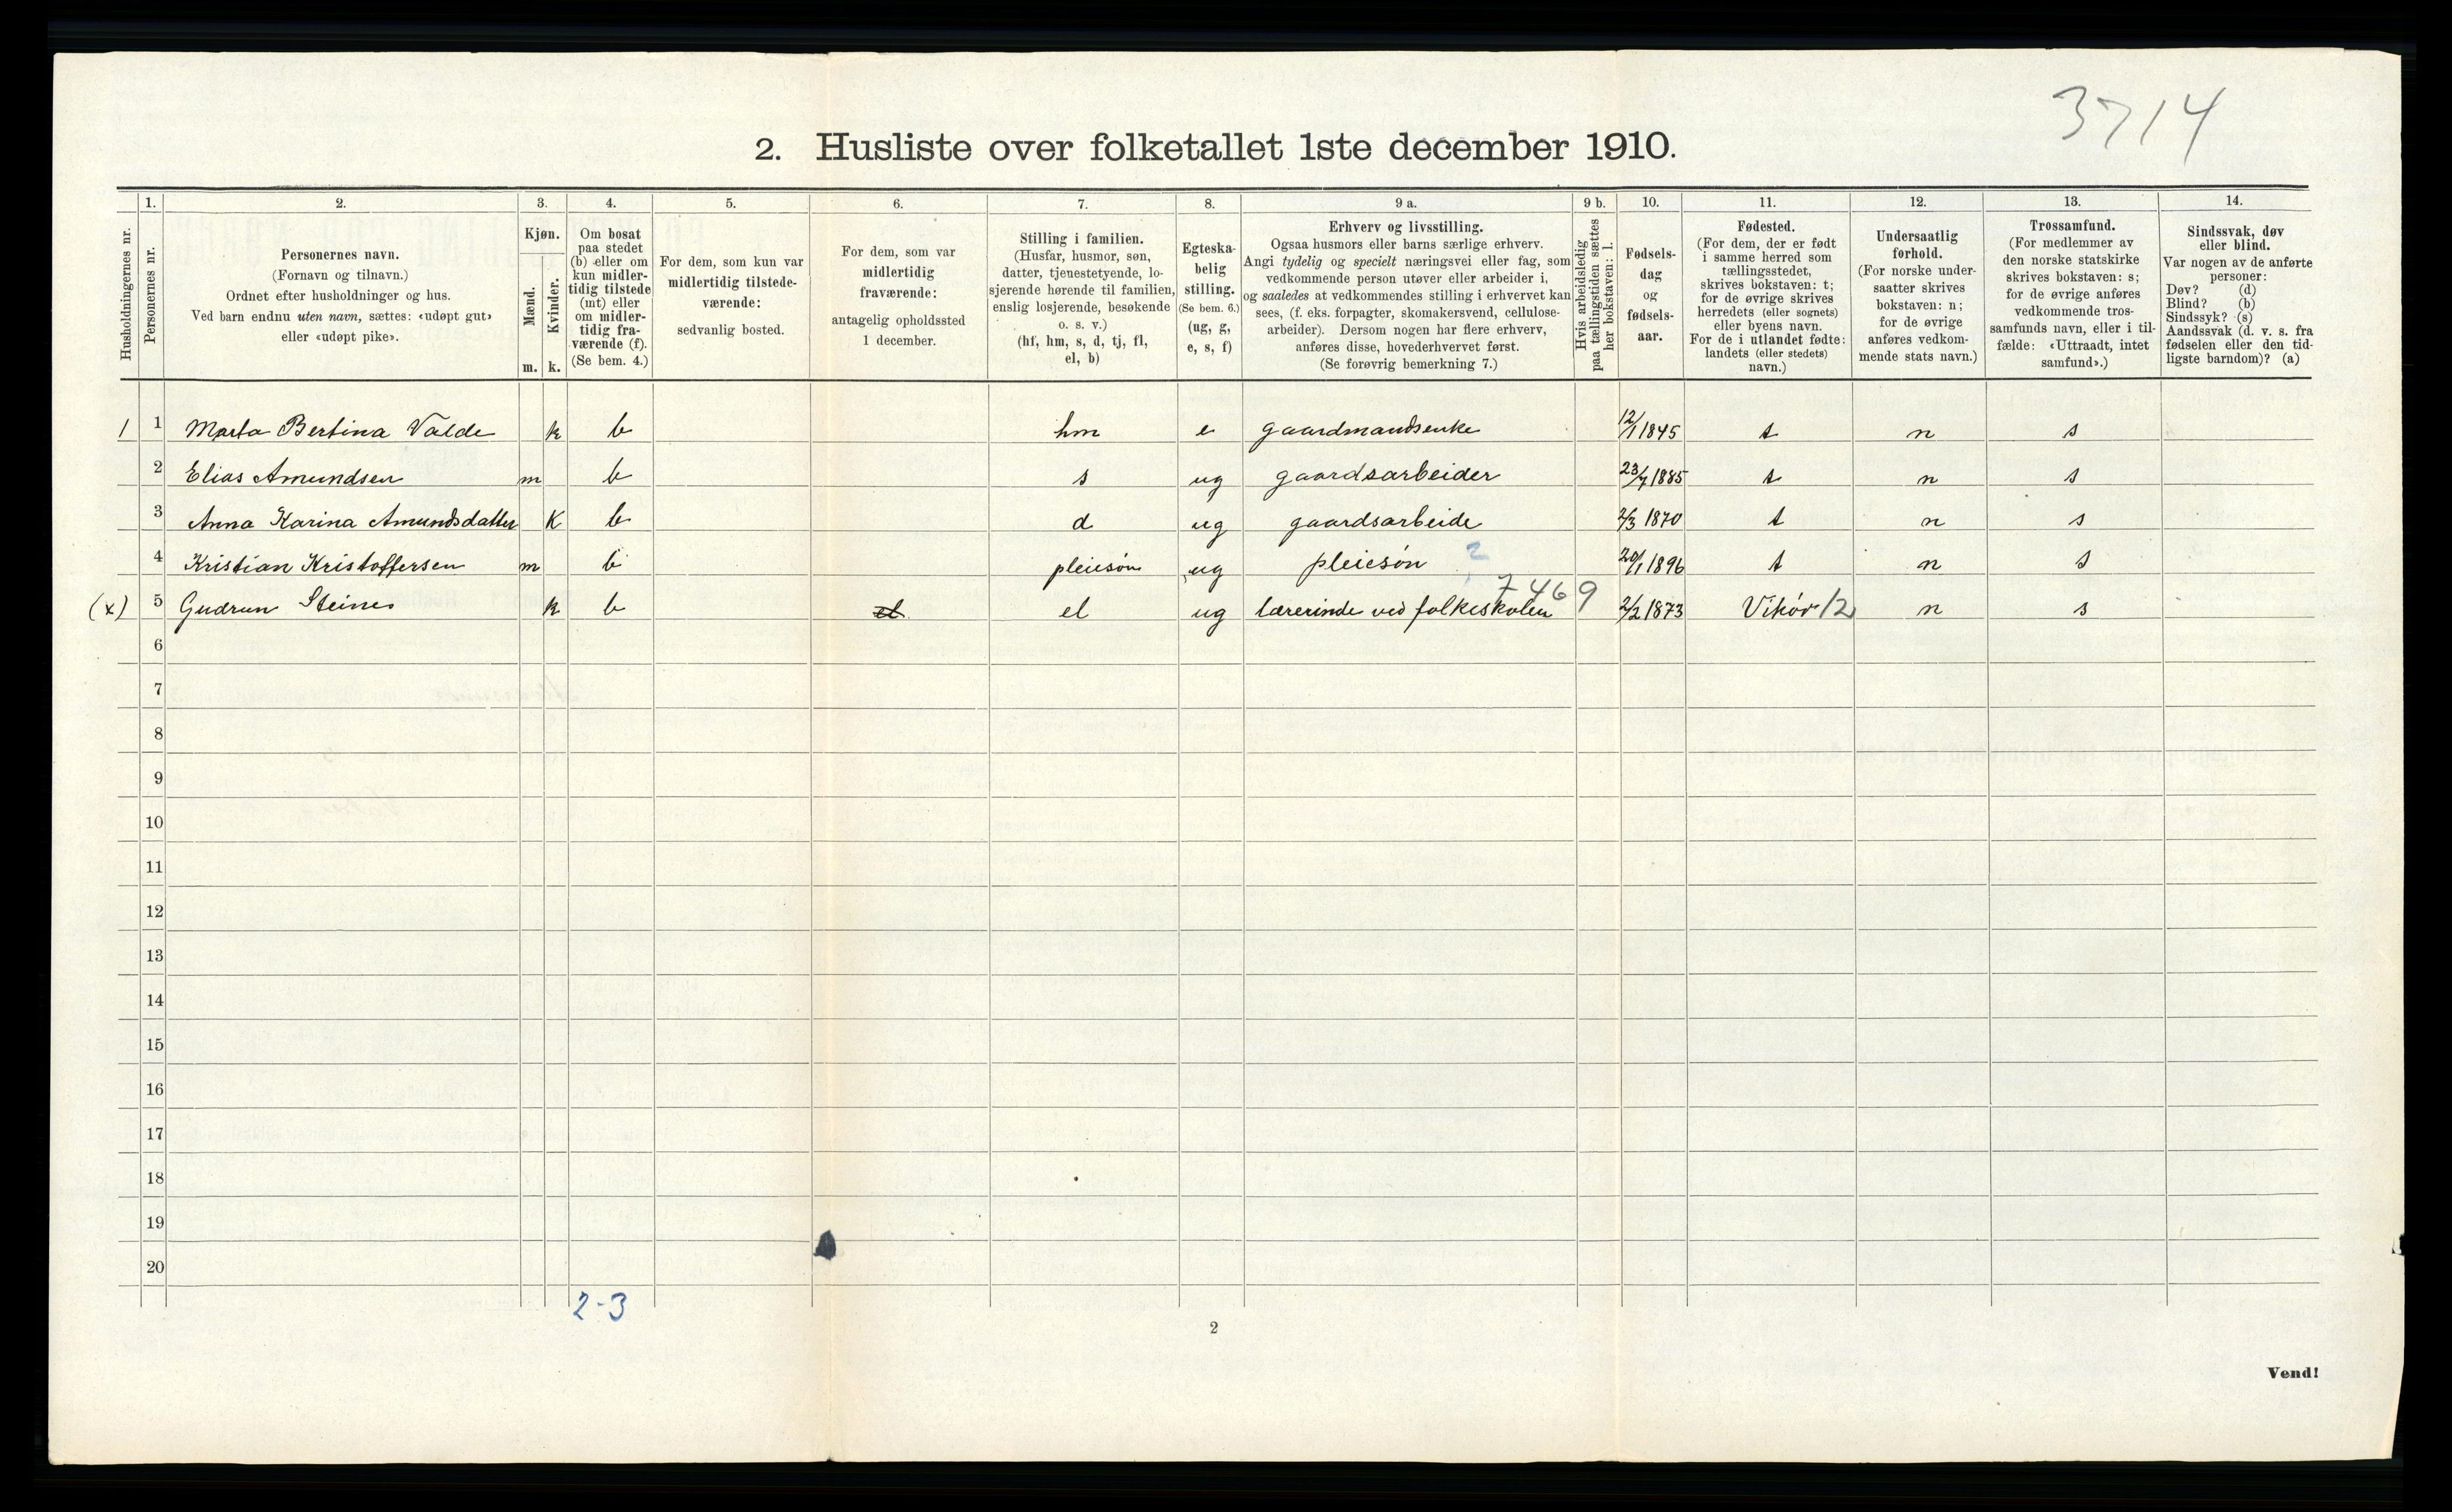 3714
2. Husliste over folketallet 1ste december 1910.
Husholdningernes nr.
1.
Personernes nr.
2.
Personernes navn.
(Fornavn og tilnavn.)
Ordnet efter husholdninger og hus.
Ved barn endnu uten navn, sættes: «udøpt gut»
eller «udøpt pike».
3.
Kjøn.
Mænd.
Kvinder.
m. k.
4.
Om bosat
paa stedet
(b) eller om
kun midler-
tidig tilstede
(mt) eller
om midler-
tidig fra-
værende (f).
(Se bem. 4.)
5.
For dem, som kun var
midlertidig tilstede-
værende:
sedvanlig bosted.
6.
For dem, som var
midlertidig
fraværende:
antagelig opholdssted
1 december.
7.
Stilling i familien.
(Husfar, husmor, søn,
datter, tjenestetyende, lo-
sjerende hørende til familien,
enslig losjerende, besøkende
o. s. v.)
(hf, hm, s, d, tj, fl,
el, b)
8.
Egteska-
belig
stilling.
(Se bem. 6.)
(ug, g,
e, s, f)
9 a.
Erhverv og livsstilling.
Ogsaa husmors eller barns særlige erhverv.
Angi tydelig og specielt næringsvei eller fag, som
vedkommende person utøver eller arbeider i,
og saaledes at vedkommendes stilling i erhvervet kan
sees, (f. eks. forpagter, skomakersvend, cellulose-
arbeider). Dersom nogen har flere erhverv,
anføres disse, hovederhvervet først.
(Se forøvrig bemerkning 7.)
9 b.
Hvis arbeidsledig
paa tællingstiden sættes
her bokstaven: l.
10.
Fødsels-
dag
og
fødsels-
aar.
11.
Fødested.
(For dem, der er født
i samme herred som
tællingsstedet,
skrives bokstaven: t;
for de øvrige skrives
herredets (eller sognets)
eller byens navn.
For de i utlandet fødte:
landets (eller stedets)
navn.)
12.
Undersaatlig
forhold.
(For norske under-
saatter skrives
bokstaven: n;
for de øvrige
anføres vedkom-
mende stats navn.)
13.
Trossamfund.
(For medlemmer av
den norske statskirke
skrives bokstaven: s;
for de øvrige anføres
vedkommende tros-
samfunds navn, eller i til-
fælde: «Uttraadt, intet
samfund».)
14.
Sindssvak, døv
eller blind.
Var nogen av de anførte
personer:
Døv? (d)
Blind? (b)
Sindssyk? (s)
Aandssvak (d. v. s. fra
fødselen eller den tid-
ligste barndom)? (a)
1 1 Marta Bertina Valde k b hm e gaardmandsenke 12/1 1845 t n s
2 Elias Amundsen m b s ug gaardsarbeider 23/7 1885 t n s
3 Anna Karina Amundsdatter K b d ug gaardsarbeide 2/3 1870 t n s
4 Kristian Kristoffersen m b pleiesøn ug pleiesøn ? 20/1 1896 t n s
7469
(x) 5 Gudrun Steines k b el el ug lærerinde ved folkeskolen 2/2 1873 Vikór 12 n s
6
7
8
9
10
11
12
13
14
15
16
17
18
19
20
2-3
2
Vend!